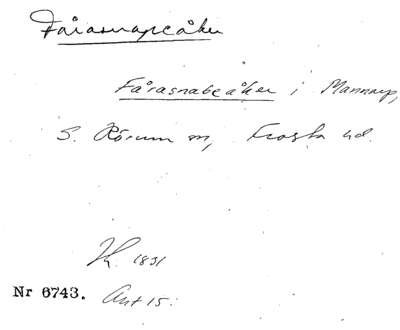 Fårasnapeåker
Fårasnabeåker i Mannarp,
S. Rörum sn, Frosta hd.
Hy. 1831
Nr 6743. Akt 15.